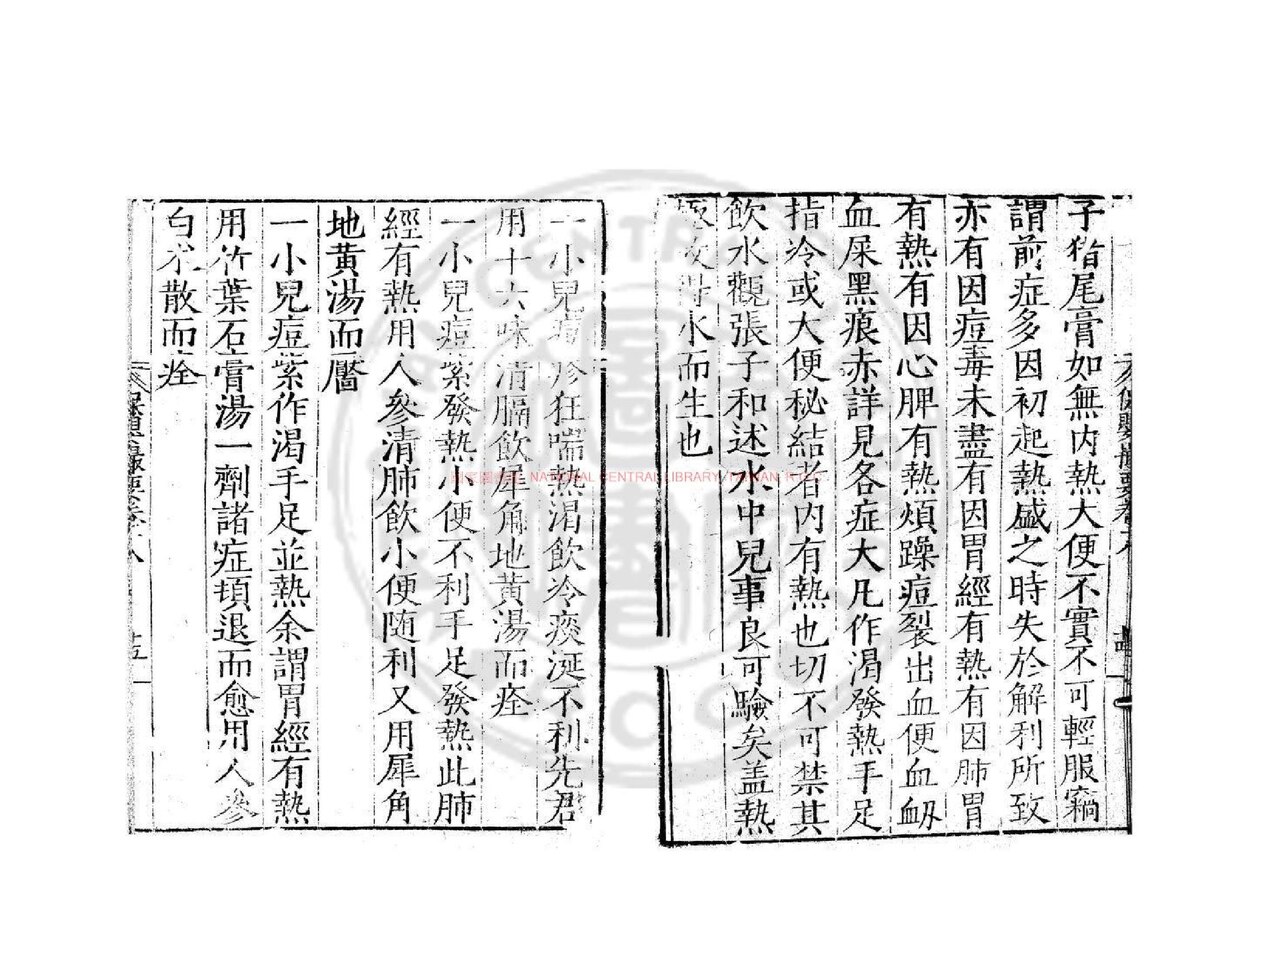 子猪尾膏如無内熱大便不實不可輕服竊
謂前症多因初起熱盛之時失於解利所致
亦有因痘毒未盡有因胃經有熱有因肺胃
有熱有因心脾有熱煩躁痘裂出血便血衂
血屎黑痕赤詳見各症大凡作渴發熱手足
指冷或大便秘結者内有熱也切不可禁其
飲水觀張子和述水中兒事良可驗矣盖熱
得水而生也
一小兒痘疹狂喘熱渴飲冷痰涎不利先君
用十六味清膈飲犀角地黃湯而痊
一小兒痘紫發熱小便不利手足發熱此肺
經有熱用人參清肺飲小便随利又用犀角
地黃湯而靨
一小兒痘紫作渴手足並熱余謂胃經有熱
用竹葉石膏湯一劑諸症頓退而愈用人參
白朮散而痊
NATIONAL CENTRAL LIBRARY